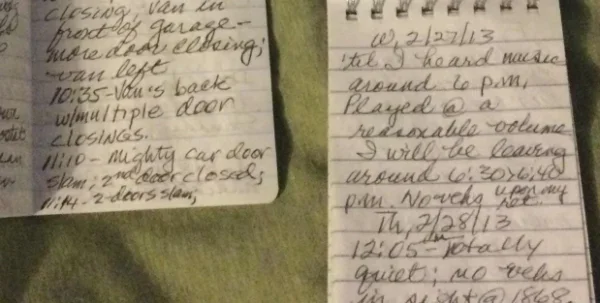 closing, van in
front of garage-
more door closing;
van left
10:35-Van's back
w/multiple door
closings.
11:10- Mighty car door
slam; 2nd door closed;
11:14- 2 doors slam;
W, 2/27/13
'til I heard music
around 6 pm,
Played @ a
reasonable volume
I will be leaving
around 6:30>6:40
pm. No vehs upon my
ret.
Th, 2/28/13
12:05 - Totally
quiet; no vehs
in sight @ 1868